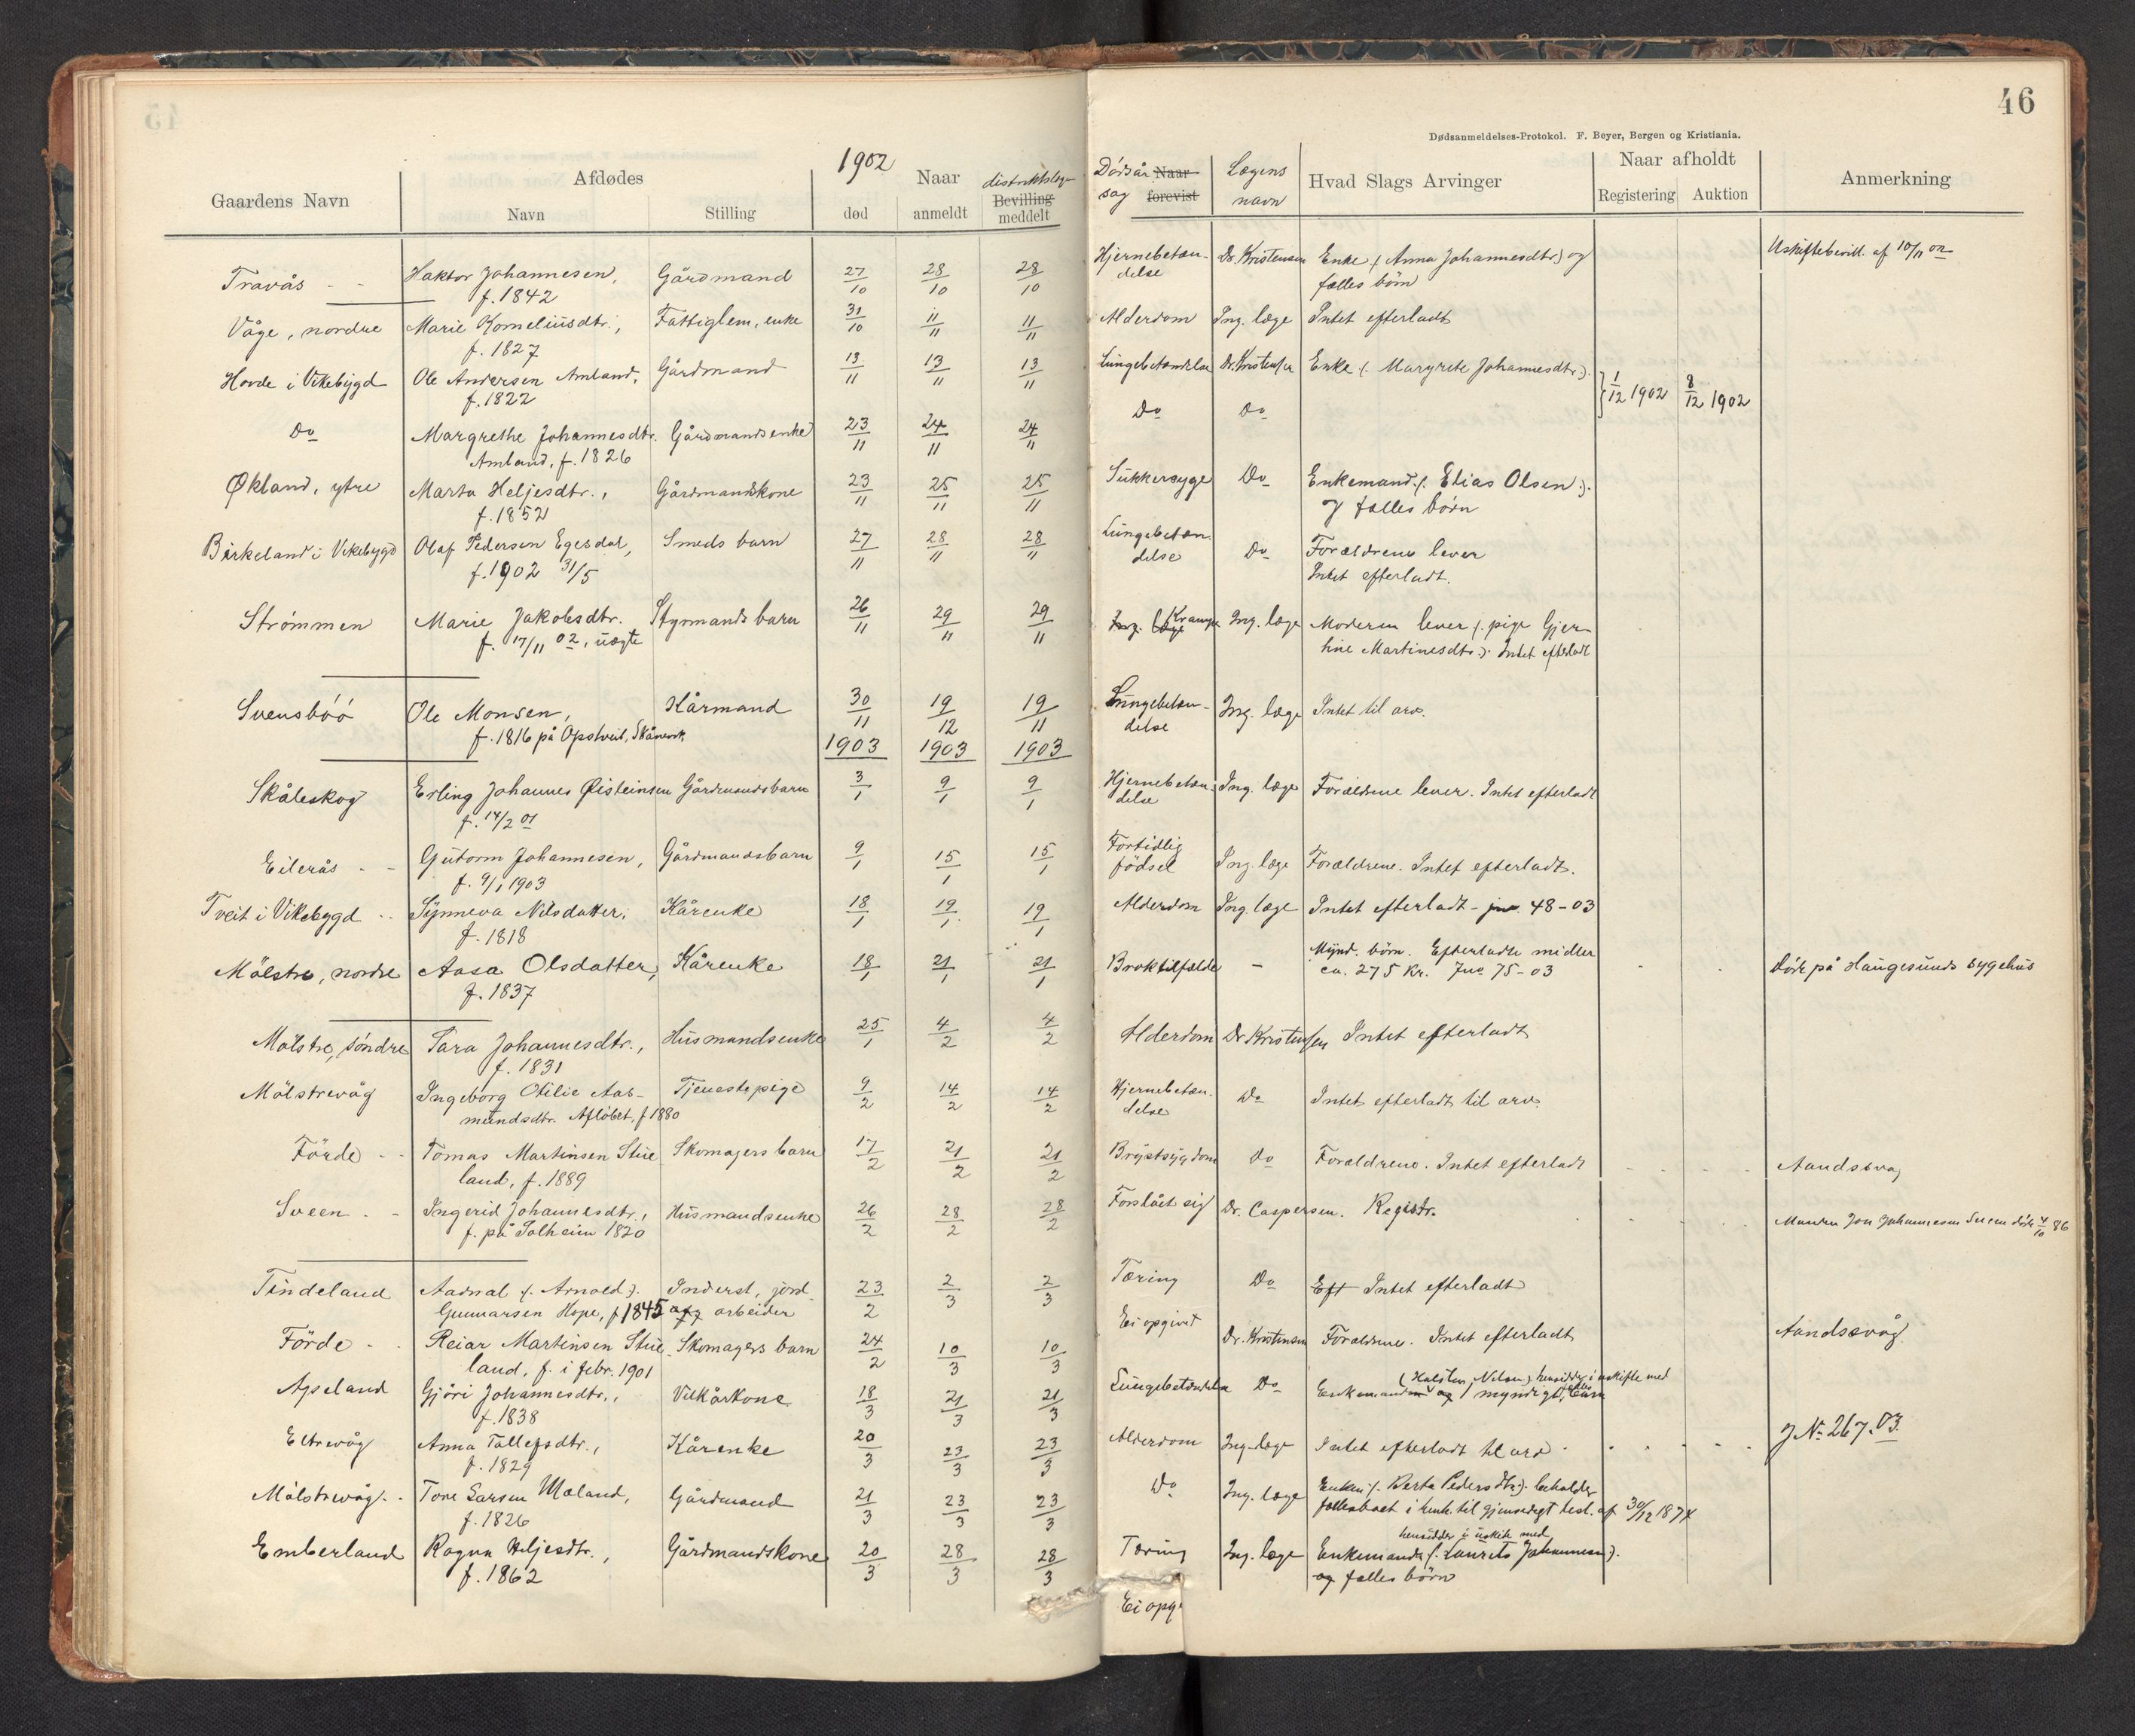 46
Dødsanmeldelses-Protokol. F. Beyer, Bergen og Kristiania.
1902
Gaardens Navn
Afdødes
Navn
Stilling
Naar
død
anmeldt
distriktslæge
Bevilling
meddelt
Dødsår Naar
sag forevist
Lægens
navn
Hvad Slags Arvinger
Naar afholdt
Registering Auktion
Anmerkning
Travås - - Haktor Johannesen, Gårdmand 27/10 28/10 28/10 Hjernebetæn- Dr. Kristensen Enke (: Anna Johannesdtr:) og Uskiftebevill. af 10/11 02
f. 1842 delse fælles børn
Våge, nordre Marie Korneliusdtr., Fattiglem, enke 31/10 11/11 11/11 Alderdom Ing. læge Intet efterladt
f. 1827
Hovde i Vikebygd Ole Andersen Amland, Gårdmand 13/11 13/11 13/11 Lungebetændelse Dr. Kristensen Enke (: Margrete Johannesdtr:). } 1/12 1902 8/12 1902
f. 1822
Do Margrethe Johannesdtr. Gårdmandsenke 23/11 24/11 24/11 Do Do
Amland, f. 1826
Økland, ytre Marta Heljesdtr., Gårdmandskone 23/11 25/11 25/11 Sukkersyge Do Enkemand (: Elias Olsen :).
f. 1852 7 fælles børn
Birkeland i Vikebygd Olaf Pedersen Egesdal, Smeds barn 27/11 28/11 28/11 Lungebetæn- Do Forældrene lever
f. 1902 31/5 delse Intet efterladt.
Strømmen Marie Jakobsdtr. Styrmands barn 26/11 29/11 29/11 Ing. læge Krampe Ing. læge Moderen lever (: pige Gjer-
f. 17/11 02, uægte tine Martinesdtr:). Intet efterladt
Svensbøø Ole Monsen, Kårmand 30/11 19/12 19/11 Lungebetæn- Ing. læge Intet til arv.
f. 1816 på Opstveit, Skånevik delse
1903 1903 1903
Skåleskog Erling Johannes Øisteinsen Gårdmandsbarn 3/1 9/1 9/1 Hjernebetæn- Ing. læge Forældrene lever. Intet efterladt
f. 14/2 01 delse
Eilerås - - Gutorm Johannesen, Gårdmandsbarn 9/1 15/1 15/1 Fortidlig Ing. læge Forældrene. Intet efterladt.
f. 9/1 1903 fødsel
Tveit i Vikebygd - - Synneva Nilsdatter, Kårenke 18/1 19/1 19/1 Alderdom Ing. læge Intet efterladt - jnr. 48-03
f. 1818
Mølstre, nordre Aasa Olsdatter, Kårenke 18/1 21/1 21/1 Broktilfælde - Mynd. børn. Efterladte midler Døde på Haugesunds sygehus
f. 1837 ca. 275 kr. Jno 75-03
Mølstre, søndre Sara Johannesdtr., Husmandsenke 25/1 4/2 4/2 Alderdom Dr Kristensen Intet efterladt
f. 1831
Mølstrevåg Ingeborg Otilie Aas- Tjenestepige 9/2 14/2 14/2 Hjernebetæn- Do Intet efterladt til arv.
mundsdtr. Afløbet, f 1880 delse
Førde - - Tomas Martinsen Stue- Skomagers barn 17/2 21/2 21/2 Brystsygdom Do Forældrene. Intet efterladt
land, f. 1889
Sveen - - Ingerid Johannesdtr., Husmandsenke 26/2 28/2 28/2 Forslået sig Dr. Caspersen. Registr. Manden Jon Johannesen Sveen døde 4/10 86
f. på Solheim 1820
Tindeland Aadnal (: Arnold:). Inderst, jord- 23/2 2/3 2/3 Tæring Do Eft Intet efterladt
Gunnarsen Hope, f 1845 arbeider
Førde - - Reiar Martinsen Stue- Skomagers barn 24/2 10/3 10/3 Ei opgivet Dr. Kristensen Forældrene. Intet efterladt Aandsevåg
land, f. i febr. 1901
Apeland Gjøri Johannesdtr., Vilkårkone 18/3 21/3 21/3 Lungebetændelse Do Enkemanden og 1 myndigt, barn
f. 1838
Eltrevåg Anna Tollefsdtr., Kårenke 20/3 23/3 23/3 Alderdom Ing. læge Intet efterladt til arv J No. 267.03.
f. 1829
Mølstrevåg - - Tore Larsen Mæland, Gårdmand 21/3 23/3 23/3 Do Ing. læge Enken (: Berta Pedersdtr:). beholder
f. 1826 fællesboet i henh. til gjensidigt test. af 30/12 1874
Emberland Ragna Heljesdtr., Gårdmandskone 20/3 28/3 28/3 Tæring Ing. læge hensidder i uskifte med Enkemand (: Laurits Johannesen:).
f. 1862 og fælles børn
Ei opg